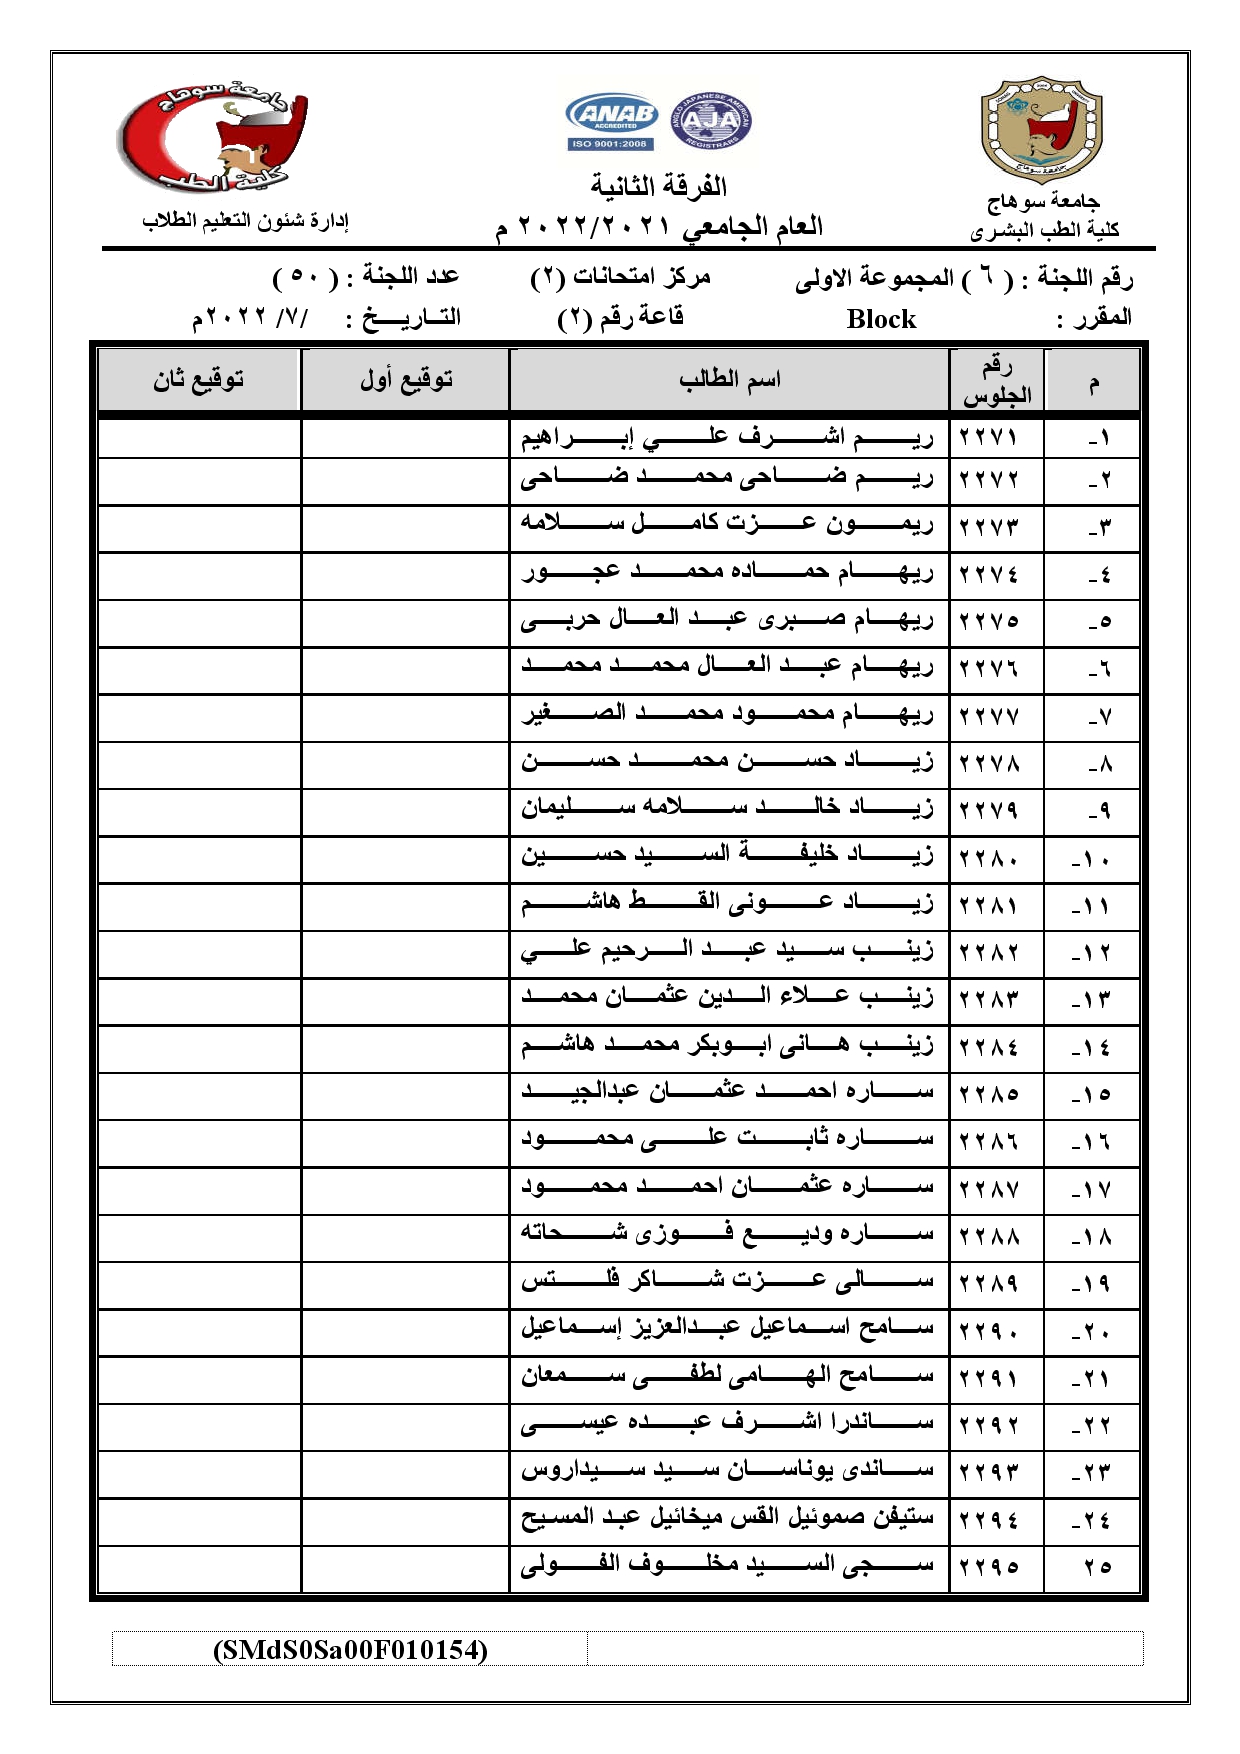 جامعة سوهاج
كلية الطب البشرى
ANAB
ACCREDITED
ISO 9001:2008
ANGLO JAPANESE AMERICAN
AJA
REGISTRARS
الفرقة الثانية
العام الجامعي ٢٠٢٢/٢٠٢١ م
جامعة سوهاج
كلية الطب
إدارة شئون التعليم الطلاب
جامعة سوهاج
رقم اللجنة : ( ٦ ) المجموعة الاولى مركز امتحانات (٢) عدد اللجنة : ( ٥٠ )
المقرر : Block قاعة رقم (٢) التـاريـــخ : /٧/ ٢٠٢٢م
م رقم الجلوس اسم الطالب توقيع أول توقيع ثان
١- ٢٢٧١ ريم اشرف علي إبراهيم
٢- ٢٢٧٢ ريم ضاحى محمد ضاحى
٣- ٢٢٧٣ ريمون عزت كامل سلامه
٤- ٢٢٧٤ ريهام حماده محمد عجور
٥- ٢٢٧٥ ريهام صبرى عبد العال حربى
٦- ٢٢٧٦ ريهام عبد العال محمد محمد
٧- ٢٢٧٧ ريهام محمود محمد الصغير
٨- ٢٢٧٨ زياد حسن محمد حسن
٩- ٢٢٧٩ زياد خالد سلامه سليمان
١٠- ٢٢٨٠ زياد خليفة السيد حسين
١١- ٢٢٨١ زياد عونى القط هاشم
١٢- ٢٢٨٢ زينب سيد عبد الرحيم علي
١٣- ٢٢٨٣ زينب علاء الدين عثمان محمد
١٤- ٢٢٨٤ زينب هانى ابوبكر محمد هاشم
١٥- ٢٢٨٥ ساره احمد عثمان عبدالجيد
١٦- ٢٢٨٦ ساره ثابت على محمود
١٧- ٢٢٨٧ ساره عثمان احمد محمود
١٨- ٢٢٨٨ ساره وديع فوزى شحاته
١٩- ٢٢٨٩ سالى عزت شاكر فلتس
٢٠- ٢٢٩٠ سامح اسماعيل عبدالعزيز إسماعيل
٢١- ٢٢٩١ سامح الهامى لطفى سمعان
٢٢- ٢٢٩٢ ساندرا اشرف عبده عيسى
٢٣- ٢٢٩٣ ساندى يوناسان سيد سيداروس
٢٤- ٢٢٩٤ ستيفن صموئيل القس ميخائيل عبد المسيح
٢٥ ٢٢٩٥ سجى السيد مخلوف الفولى
(SMdS0Sa00F010154)